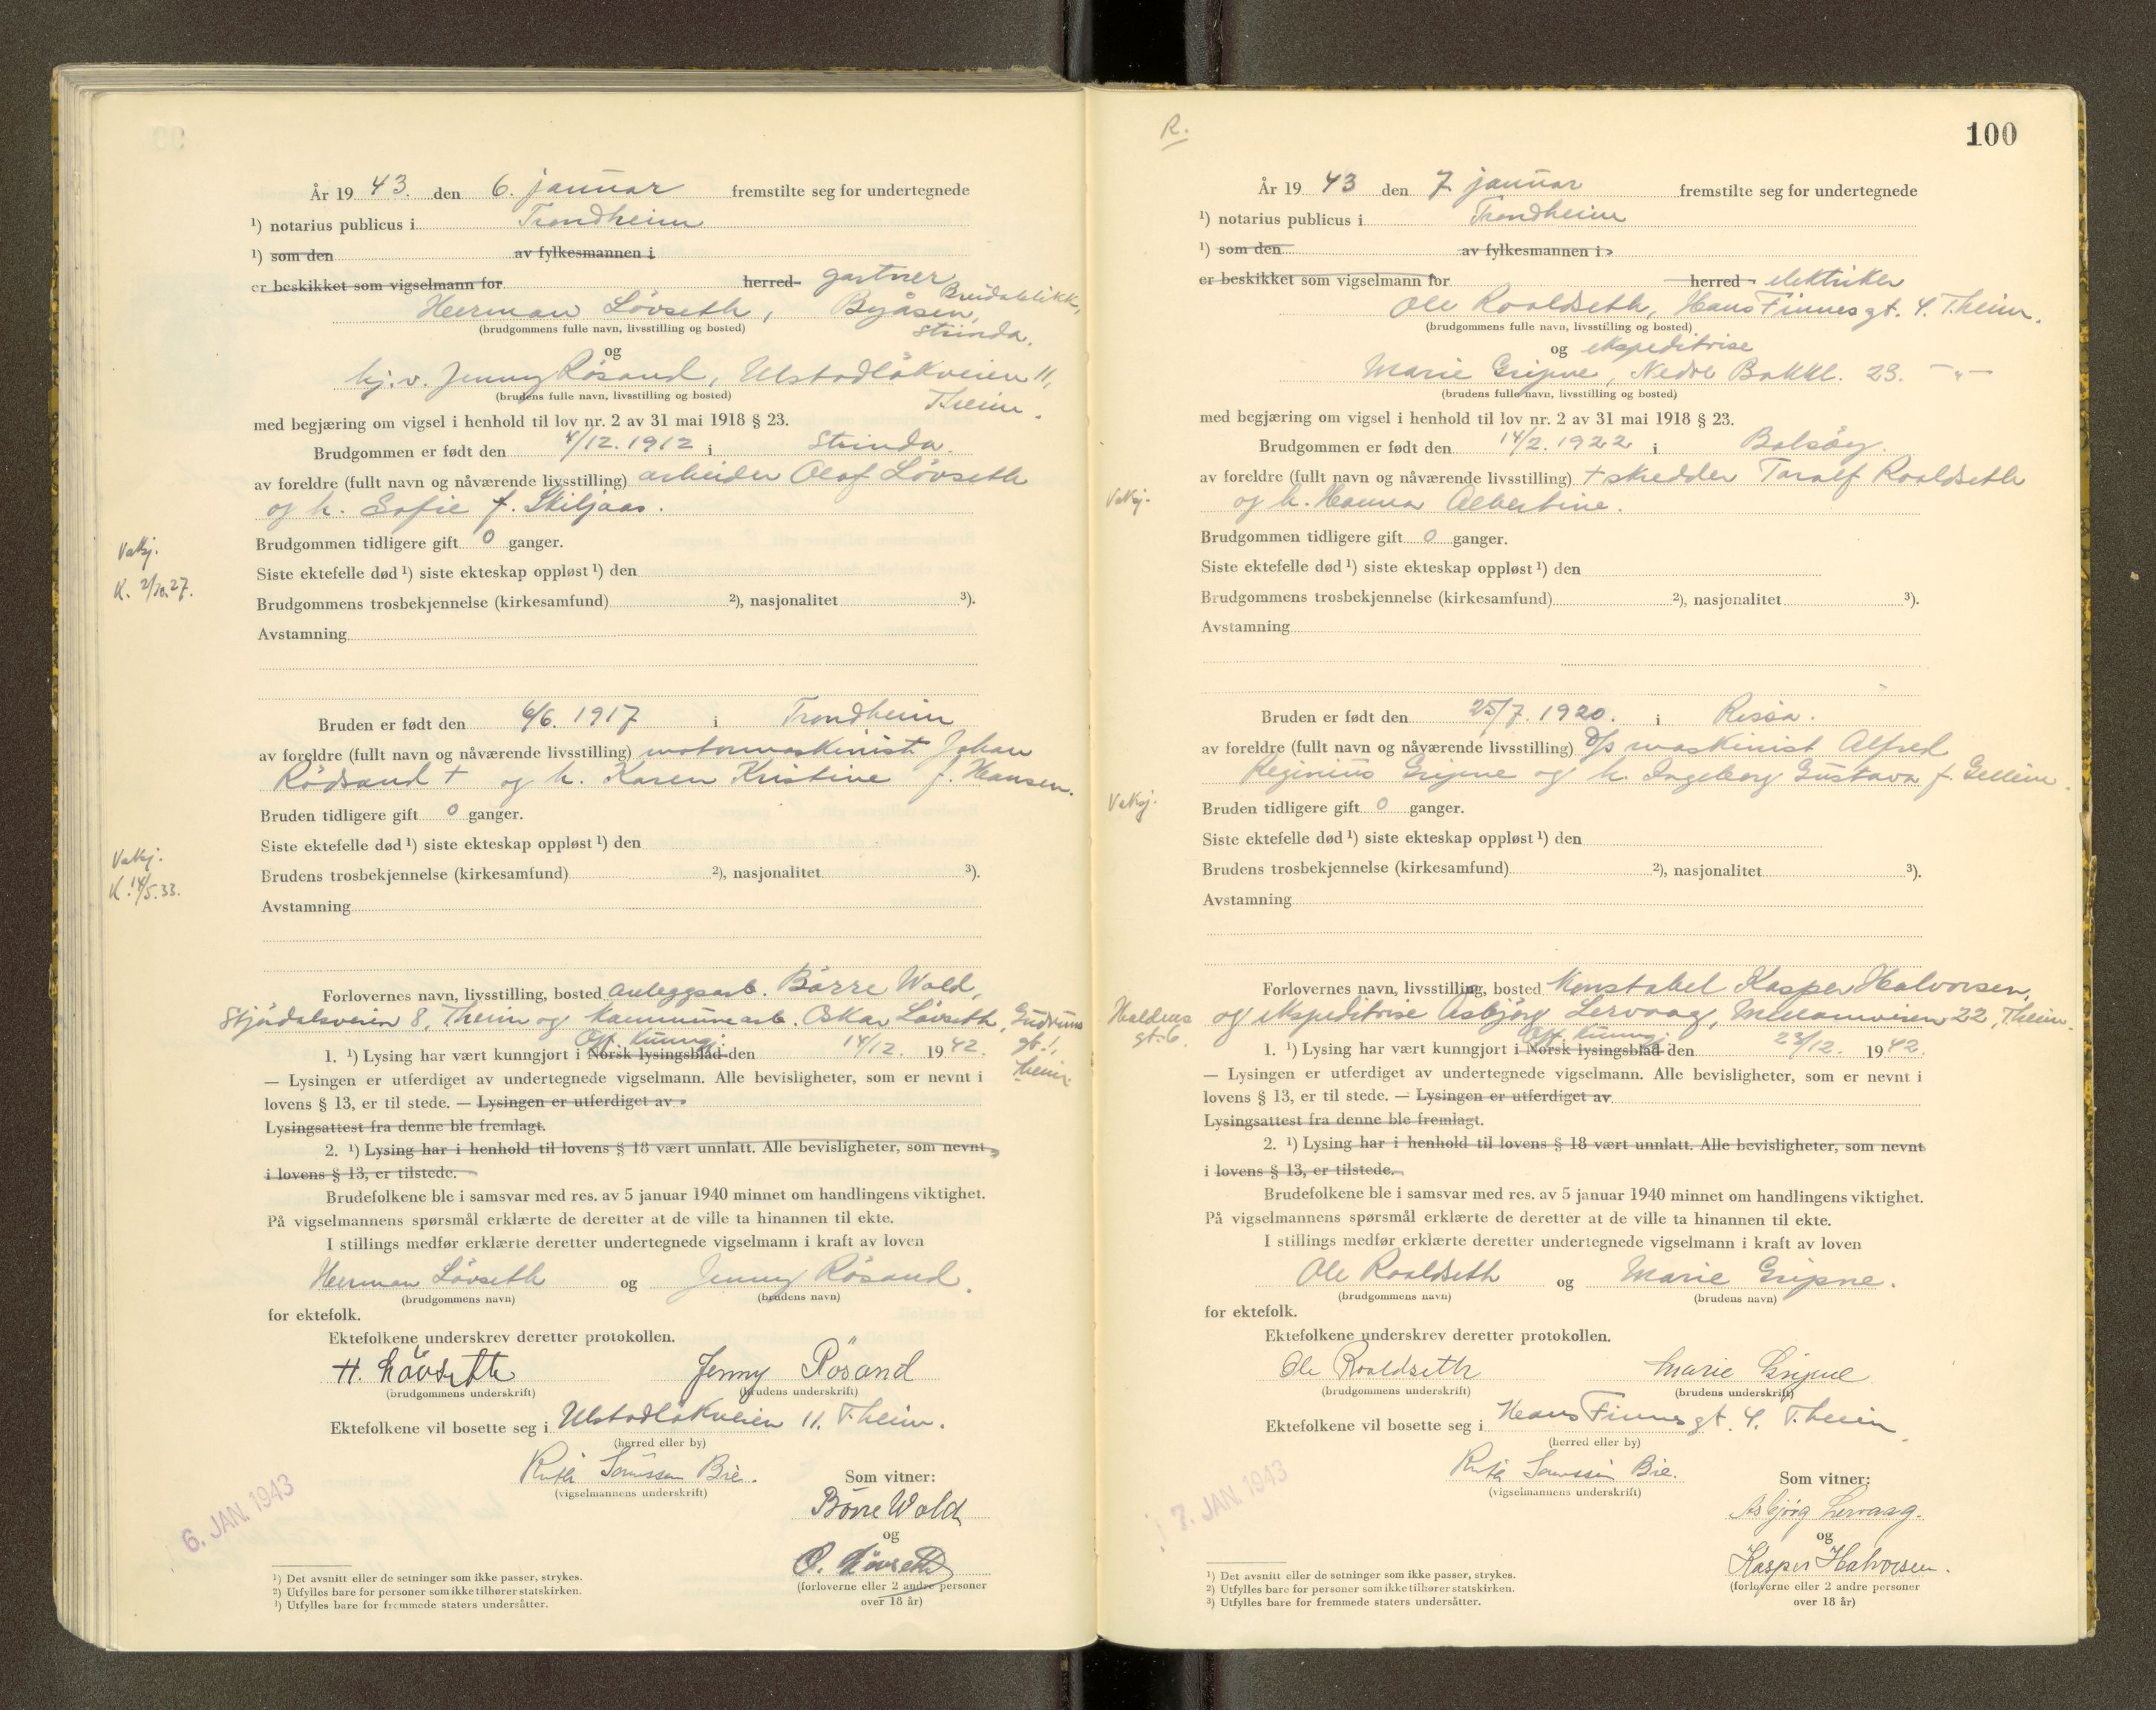 År 19 43. den 6. januar fremstilte seg for undertegnede
¹) notarius publicus i Trondheim
¹) som den av fylkesmannen i
er beskikket som vigselmann for herred gartner
Herman Lövseth, Byåsen,
Strinda.
(brudgommens fulle navn, livsstilling og bosted)
og
hj.v. Jenny Rösand, Ulstadlökveien 11,
T.heim.
(brudens fulle navn, livsstilling og bosted)
med begjæring om vigsel i henhold til lov nr. 2 av 31 mai 1918 § 23.
Brudgommen er født den 4/12. 1912 i Strinda.
av foreldre (fullt navn og nåværende livsstilling) arbeider Olaf Lövseth
og h. Sofie f. Skiljaas.
Brudgommen tidligere gift 0 ganger.
Vakj.
Siste ektefelle død ¹) siste ekteskap oppløst ¹) den
K. 2/10.27.
Brudgommens trosbekjennelse (kirkesamfund) ²), nasjonalitet ³).
Avstamning
Bruden er født den 6/6. 1917 i Trondheim
av foreldre (fullt navn og nåværende livsstilling) motormaskinist Johan
Rödsand + og h. Karen Kristine f. Hansen.
Bruden tidligere gift 0 ganger.
Siste ektefelle død ¹) siste ekteskap oppløst ¹) den
Vakj.
K. 14/5.33.
Brudens trosbekjennelse (kirkesamfund) ²), nasjonalitet ³).
Avstamning
Forlovernes navn, livsstilling, bosted anleggsarb. Börre Wold,
Stjördalsveien 8, T.heim og kommunearb. Oskar Lövseth, Gudruns
gt. 1,
T.heim.
Off. kunngj.
1. ¹) Lysing har vært kunngjort i Norsk lysingsblad den 14/12. 19 42.
— Lysingen er utferdiget av undertegnede vigselmann. Alle bevisligheter, som er nevnt i
lovens § 13, er til stede. — Lysingen er utferdiget av
Lysingsattest fra denne ble fremlagt.
2. ¹) Lysing har i henhold til lovens § 18 vært unnlatt. Alle bevisligheter, som nevnt
i lovens § 13, er tilstede.
Brudefolkene ble i samsvar med res. av 5 januar 1940 minnet om handlingens viktighet.
På vigselmannens spørsmål erklærte de deretter at de ville ta hinannen til ekte.
I stillings medfør erklærte deretter undertegnede vigselmann i kraft av loven
Herman Lövseth og Jenny Rösand.
(brudgommens navn) (brudens navn)
for ektefolk.
Ektefolkene underskrev deretter protokollen.
H. Lövseth Jenny Rösand
(brudgommens underskrift) (brudens underskrift)
Ektefolkene vil bosette seg i Ulstadlökveien 11. T.heim.
(herred eller by)
Ruth Bie.
(vigselmannens underskrift)
Som vitner:
Börre Wold
og
O. Lövseth
(forloverne eller 2 andre personer
over 18 år)
6. JAN. 1943
¹) Det avsnitt eller de setninger som ikke passer, strykes.
²) Utfylles bare for personer som ikke tilhører statskirken.
³) Utfylles bare for fremmede staters undersåtter.
R.
100
År 19 43 den 7. januar fremstilte seg for undertegnede
¹) notarius publicus i Trondheim
¹) som den av fylkesmannen i
er beskikket som vigselmann for herred elektriker
Ole Roaldseth, Hans Finnes gt. 4. T.heim.
(brudgommens fulle navn, livsstilling og bosted)
og ekspeditrise
Marie Gripne, Nedre Bakkl. 23. —"—
(brudens fulle navn, livsstilling og bosted)
med begjæring om vigsel i henhold til lov nr. 2 av 31 mai 1918 § 23.
Brudgommen er født den 14/2. 1922 i Bolsöy.
av foreldre (fullt navn og nåværende livsstilling) + skredder Taralf Roaldseth
Vakj.
og h. Hanna Albertine.
Brudgommen tidligere gift 0 ganger.
Siste ektefelle død ¹) siste ekteskap oppløst ¹) den
Brudgommens trosbekjennelse (kirkesamfund) ²), nasjonalitet ³).
Avstamning
Bruden er født den 25/7. 1920. i Rissa.
av foreldre (fullt navn og nåværende livsstilling) d/s maskinist Alfred
Reginius Gripne og h. Ingeborg Gustava f. Gellein.
Vakj.
Bruden tidligere gift 0 ganger.
Siste ektefelle død ¹) siste ekteskap oppløst ¹) den
Brudens trosbekjennelse (kirkesamfund) ²), nasjonalitet ³).
Avstamning
Forlovernes navn, livsstilling, bosted konstabel Kasper Halvorsen,
gt. 6. og ekspeditrise Asbjörg Lervaag, 22, T.heim.
Off. kunngj.
1. ¹) Lysing har vært kunngjort i Norsk lysingsblad den 23/12. 19 42.
— Lysingen er utferdiget av undertegnede vigselmann. Alle bevisligheter, som er nevnt i
lovens § 13, er til stede. — Lysingen er utferdiget av
Lysingsattest fra denne ble fremlagt.
2. ¹) Lysing har i henhold til lovens § 18 vært unnlatt. Alle bevisligheter, som nevnt
i lovens § 13, er tilstede.
Brudefolkene ble i samsvar med res. av 5 januar 1940 minnet om handlingens viktighet.
På vigselmannens spørsmål erklærte de deretter at de ville ta hinannen til ekte.
I stillings medfør erklærte deretter undertegnede vigselmann i kraft av loven
Ole Roaldseth og Marie Gripne.
(brudgommens navn) (brudens navn)
for ektefolk.
Ektefolkene underskrev deretter protokollen.
Ole Roaldseth Marie Gripne
(brudgommens underskrift) (brudens underskrift)
Ektefolkene vil bosette seg i Hans Finnes gt. 4. T.heim.
(herred eller by)
Ruth Bie.
(vigselmannens underskrift)
Som vitner:
Asbjörg Lervaag.
og
Kasper Halvorsen.
(forloverne eller 2 andre personer
over 18 år)
7. JAN. 1943
¹) Det avsnitt eller de setninger som ikke passer, strykes.
²) Utfylles bare for personer som ikke tilhører statskirken.
³) Utfylles bare for fremmede staters undersåtter.